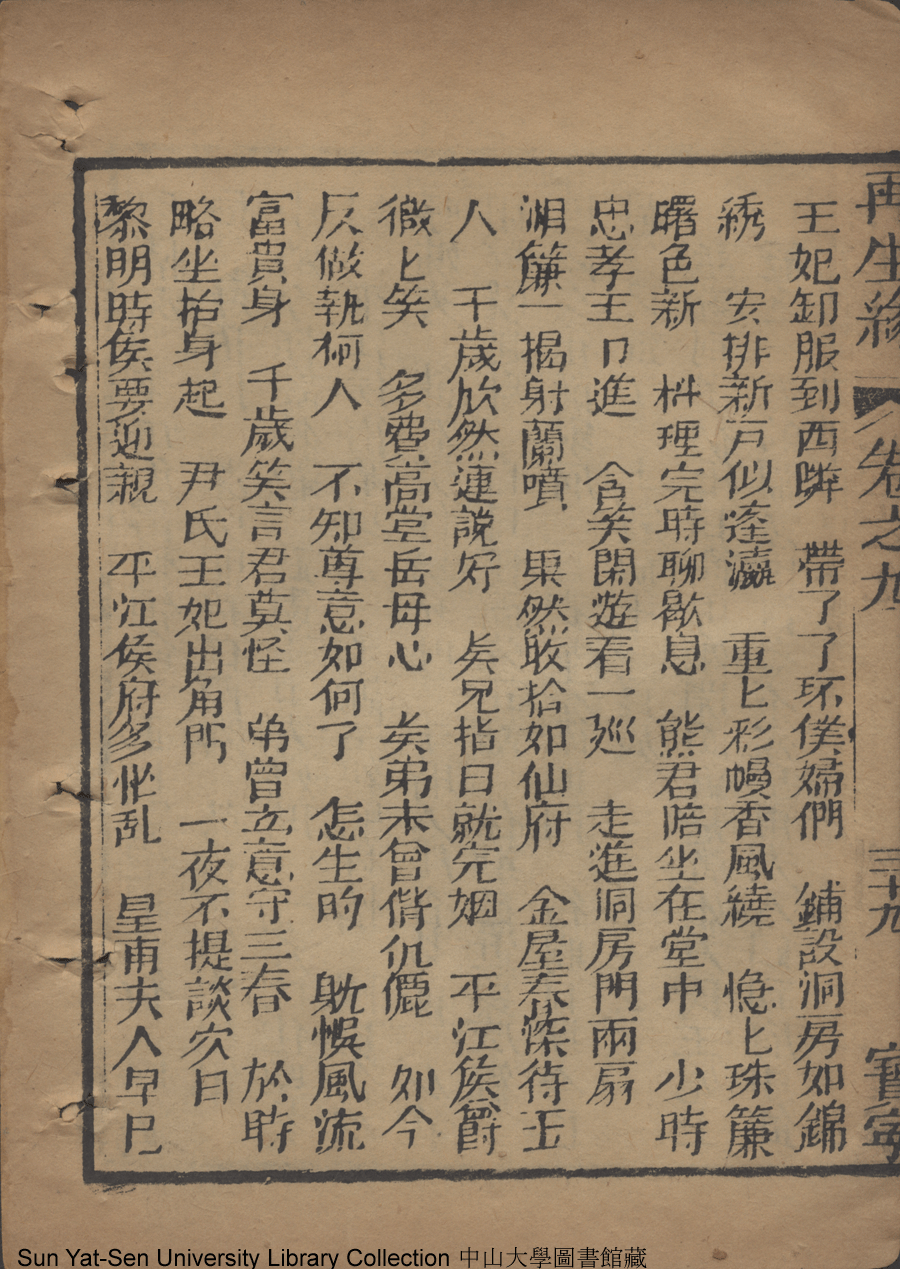 再生緣 卷之九 三十九 寶寧
王妃卸服到西鄰 帶了了环僕婦們 鋪設洞房如錦
綉 安排新户似逢瀛 重匕彩幔香風繞 隐匕珠簾
曙色新 料理完時聊歇息 熊君陪坐在堂中 少時
忠孝王卩進 含笑閑遊看一廵 走進洞房門兩扇
湘簾一揭射蘭噴 果然收拾如仙府 金屋春深待玉
人 千歲欣然連說好 矣兄指日就完姻 平江侯爵
微匕笑 多費高堂岳母心 矣弟未曾偕伉儷 如今
反做執柯人 不知尊意如何了 怎生的 躭悮風流
富貴身 千歲笑言君莫怪 弟曾立意守三春 於時
略坐抬身起 尹氏王妃出角門 一夜不提談次日
黎明時侯要迎親 平江侯府多忙乱 皇甫夫人早已
Sun Yat-Sen University Library Collection 中山大學圖書館藏